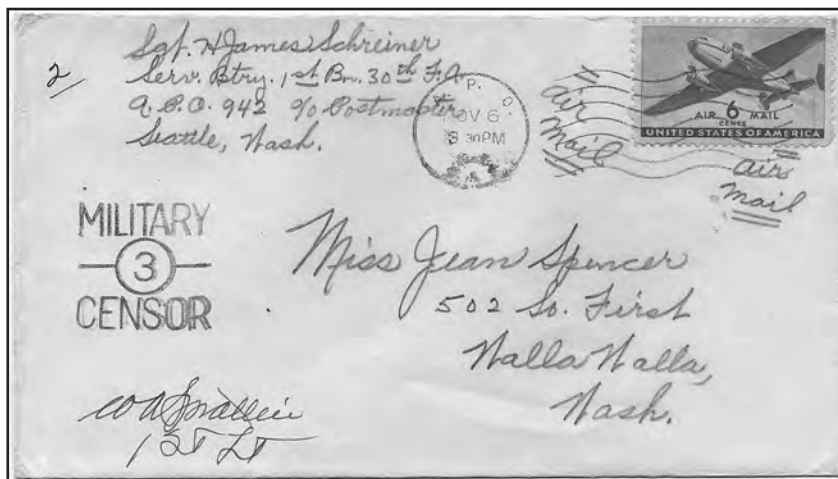 2
Sgt. H James Schreiner
Serv. Btry. 1st Bn. 30th F.A.
A.P.O. 942 c/o Postmaster
Seattle, Wash.
P. O
NOV 6
3 30PM
air
mail
AIR 6 MAIL
CENTS
UNITED STATES OF AMERICA
air
mail
MILITARY
3
CENSOR
Miss Jean Spencer
502 So. First
Walla Walla,
Wash.
1ST LT